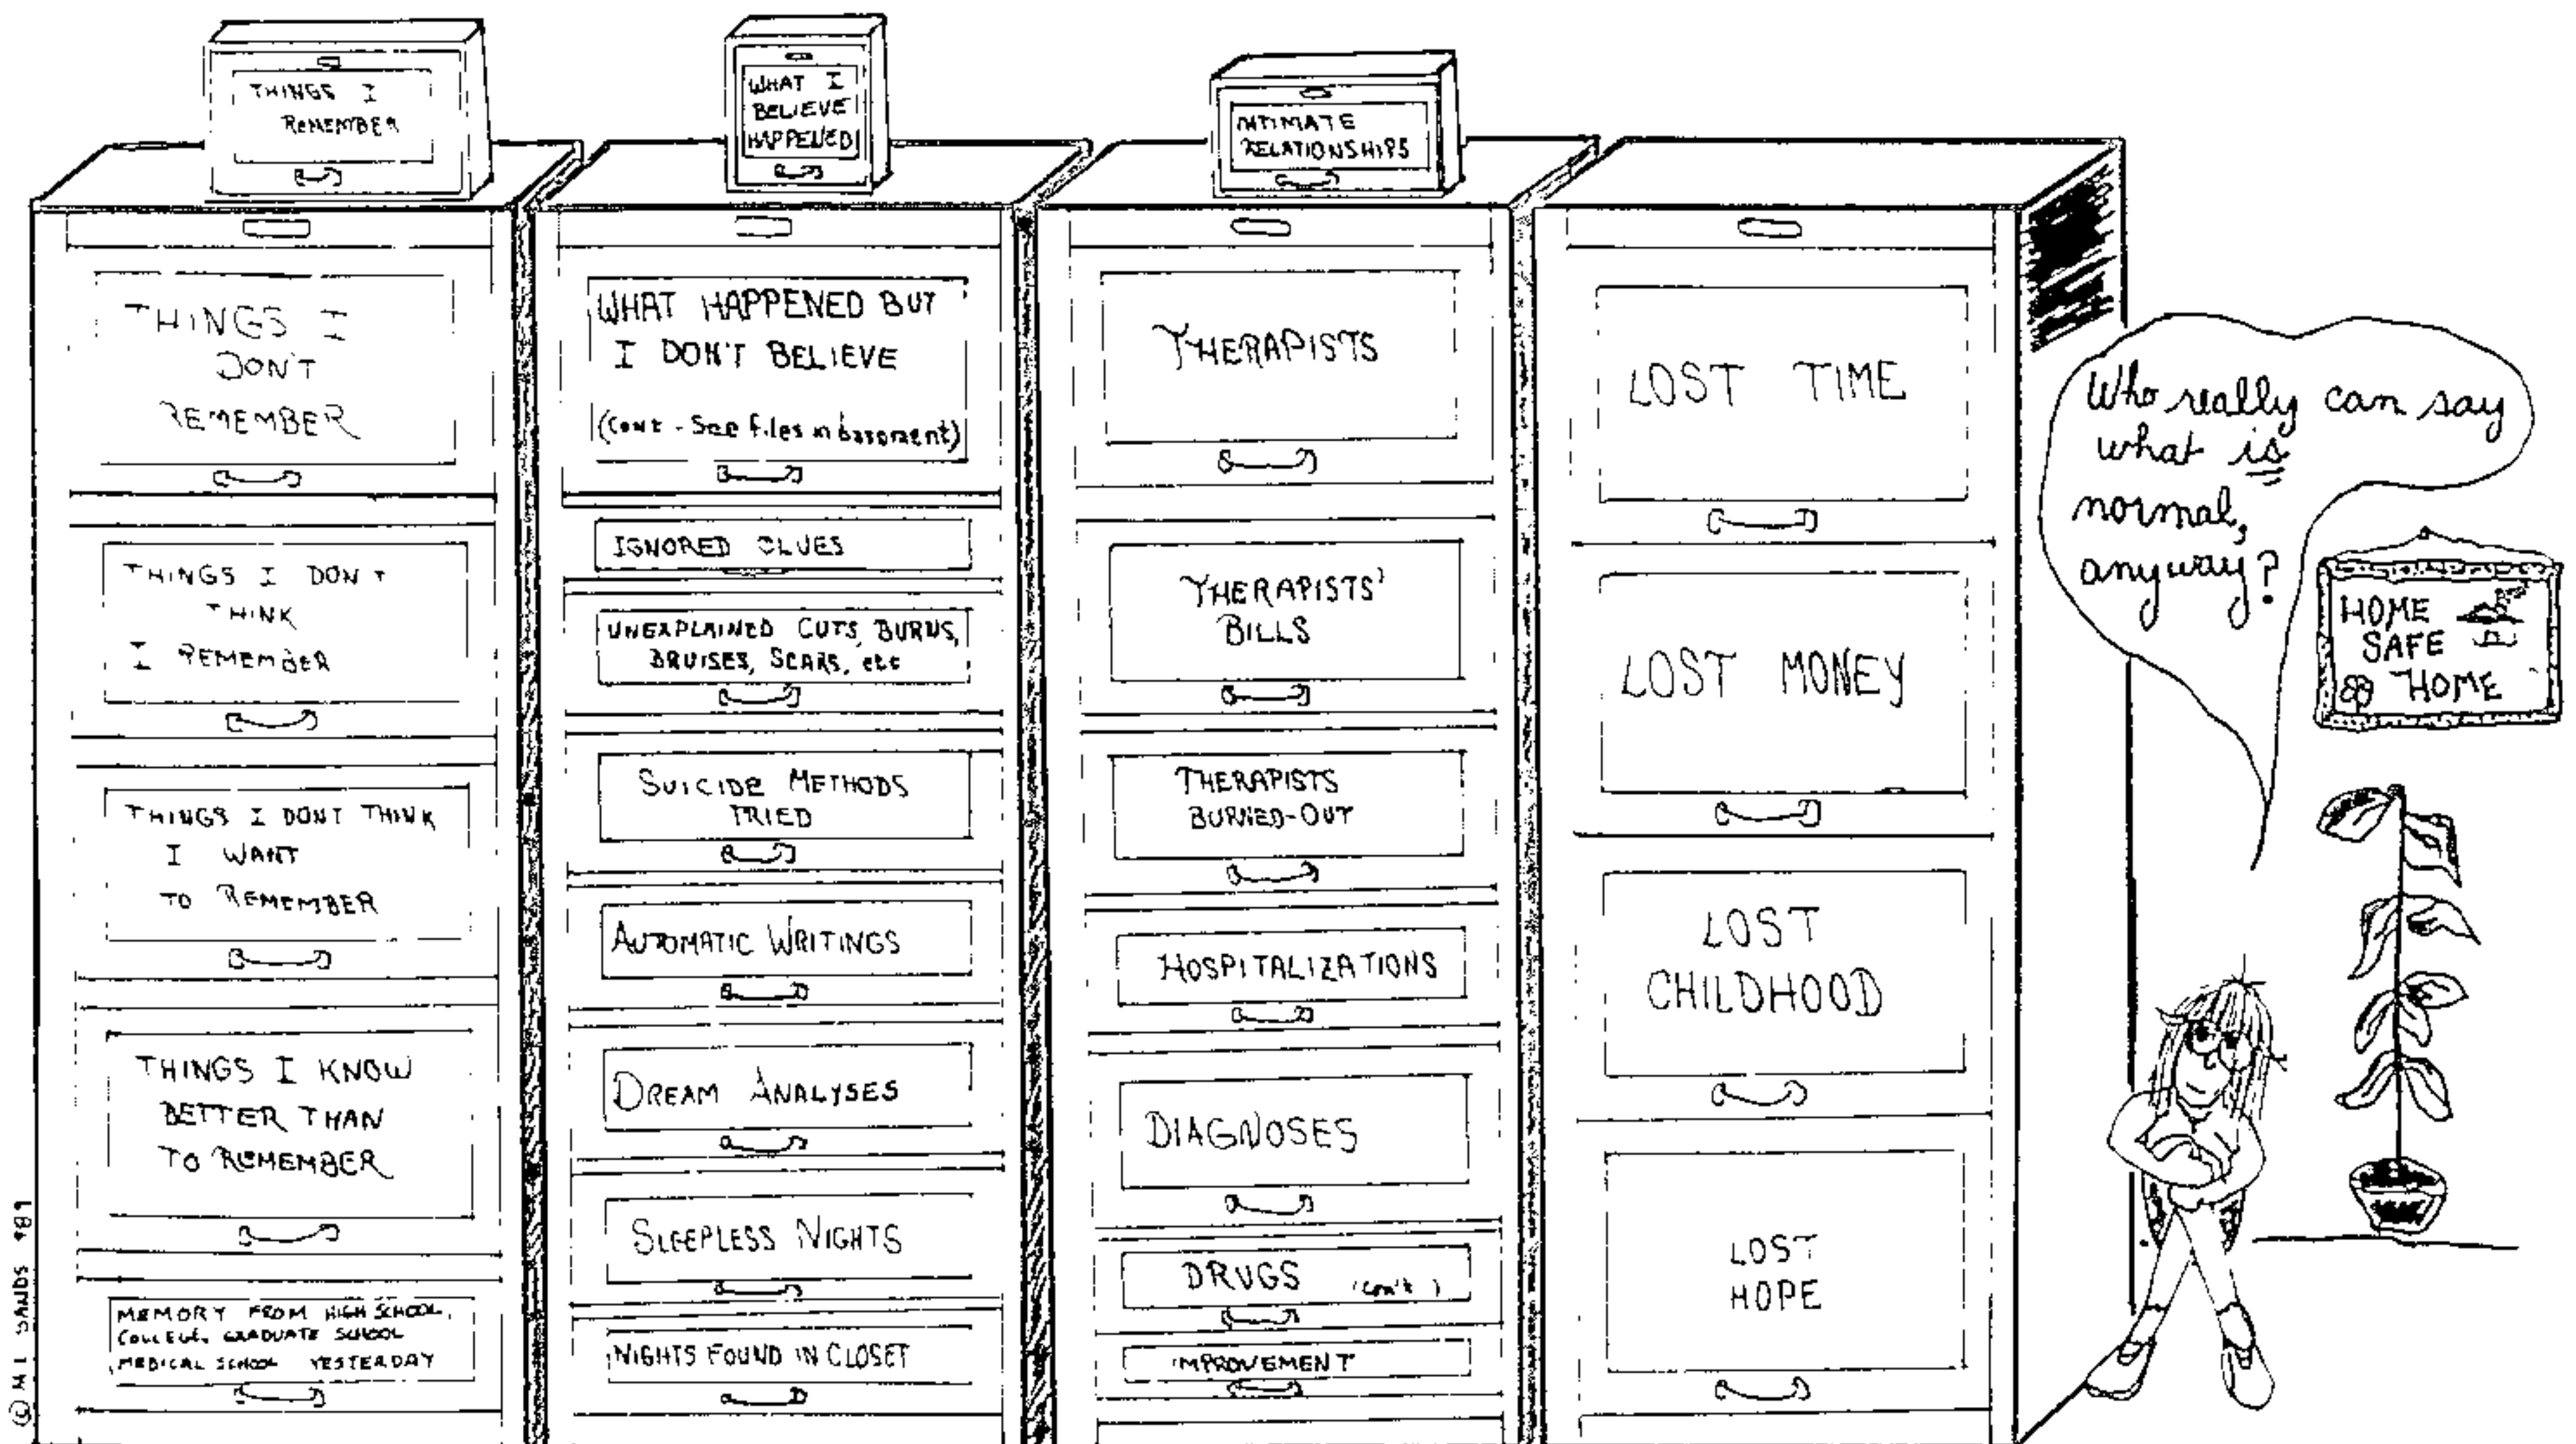 THINGS I
REMEMBER
WHAT I
BELIEVE
HAPPENED
INTIMATE
RELATIONSHIPS
THINGS I
DON'T
REMEMBER
THINGS I DON'T
THINK
I REMEMBER
THINGS I DONT THINK
I WANT
TO REMEMBER
THINGS I KNOW
BETTER THAN
TO REMEMBER
MEMORY FROM HIGH SCHOOL,
COLLEGE, GRADUATE SCHOOL
MEDICAL SCHOOL YESTERDAY
WHAT HAPPENED BUT
I DON'T BELIEVE
(Cont - See files in basement)
IGNORED CLUES
UNEXPLAINED CUTS, BURNS,
BRUISES, SCARS, etc
SUICIDE METHODS
TRIED
AUTOMATIC WRITINGS
DREAM ANALYSES
SLEEPLESS NIGHTS
NIGHTS FOUND IN CLOSET
THERAPISTS
THERAPISTS'
BILLS
THERAPISTS
BURNED-OUT
HOSPITALIZATIONS
DIAGNOSES
DRUGS (con't)
IMPROVEMENT
LOST TIME
LOST MONEY
LOST
CHILDHOOD
LOST
HOPE
Who really can say
what is
normal,
anyway?
HOME
SAFE
HOME
© M L SANDS 1989